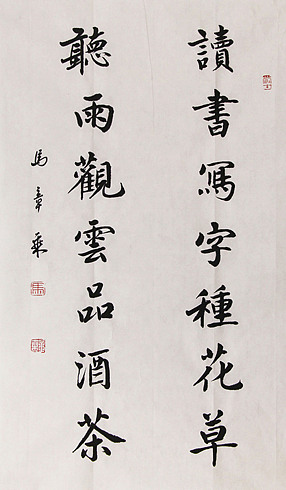 讀書寫字種花草
聽雨觀雲品酒茶
馬章乘